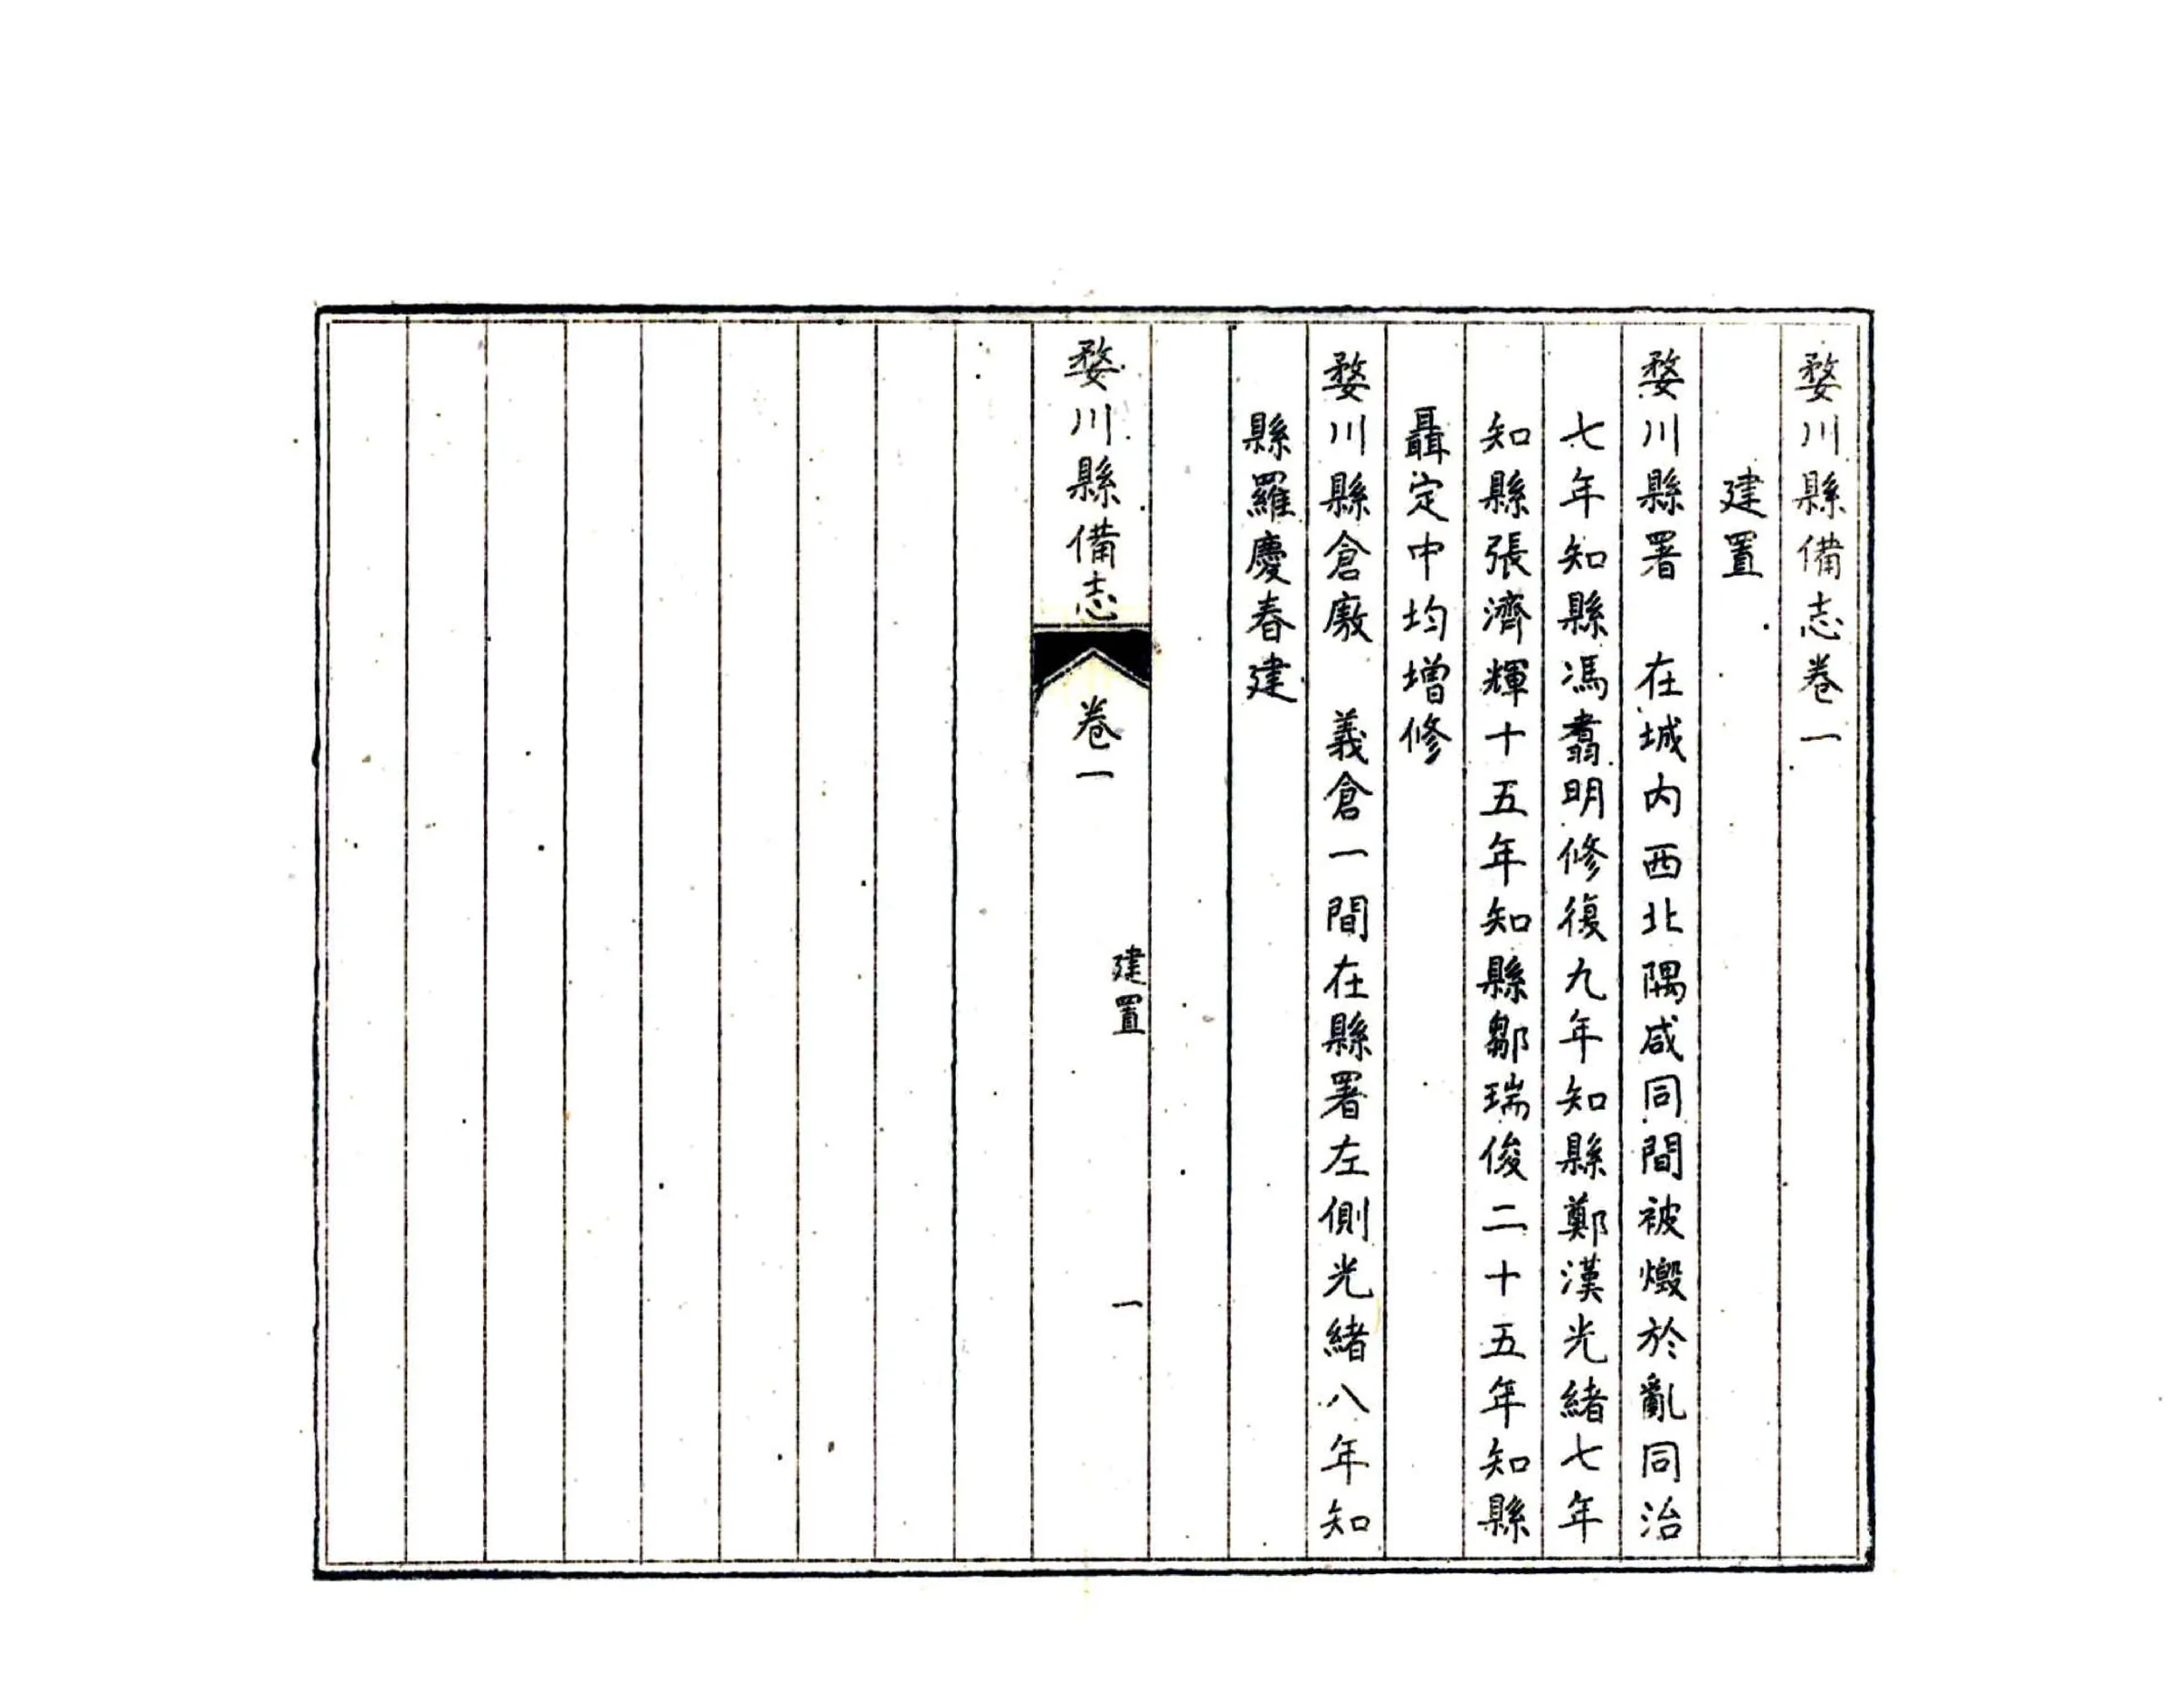 婺川縣備志卷一
建置
婺川縣署　在城内西北隅咸同間被燬於亂同治
七年知縣馮翥明修復九年知縣鄭漢光緒七年
知縣張濟輝十五年知縣鄒瑞俊二十五年知縣
聶定中均增修
婺川縣倉廒　義倉一間在縣署左側光緒八年知
縣羅慶春建
婺川縣備志　卷一　建置　一